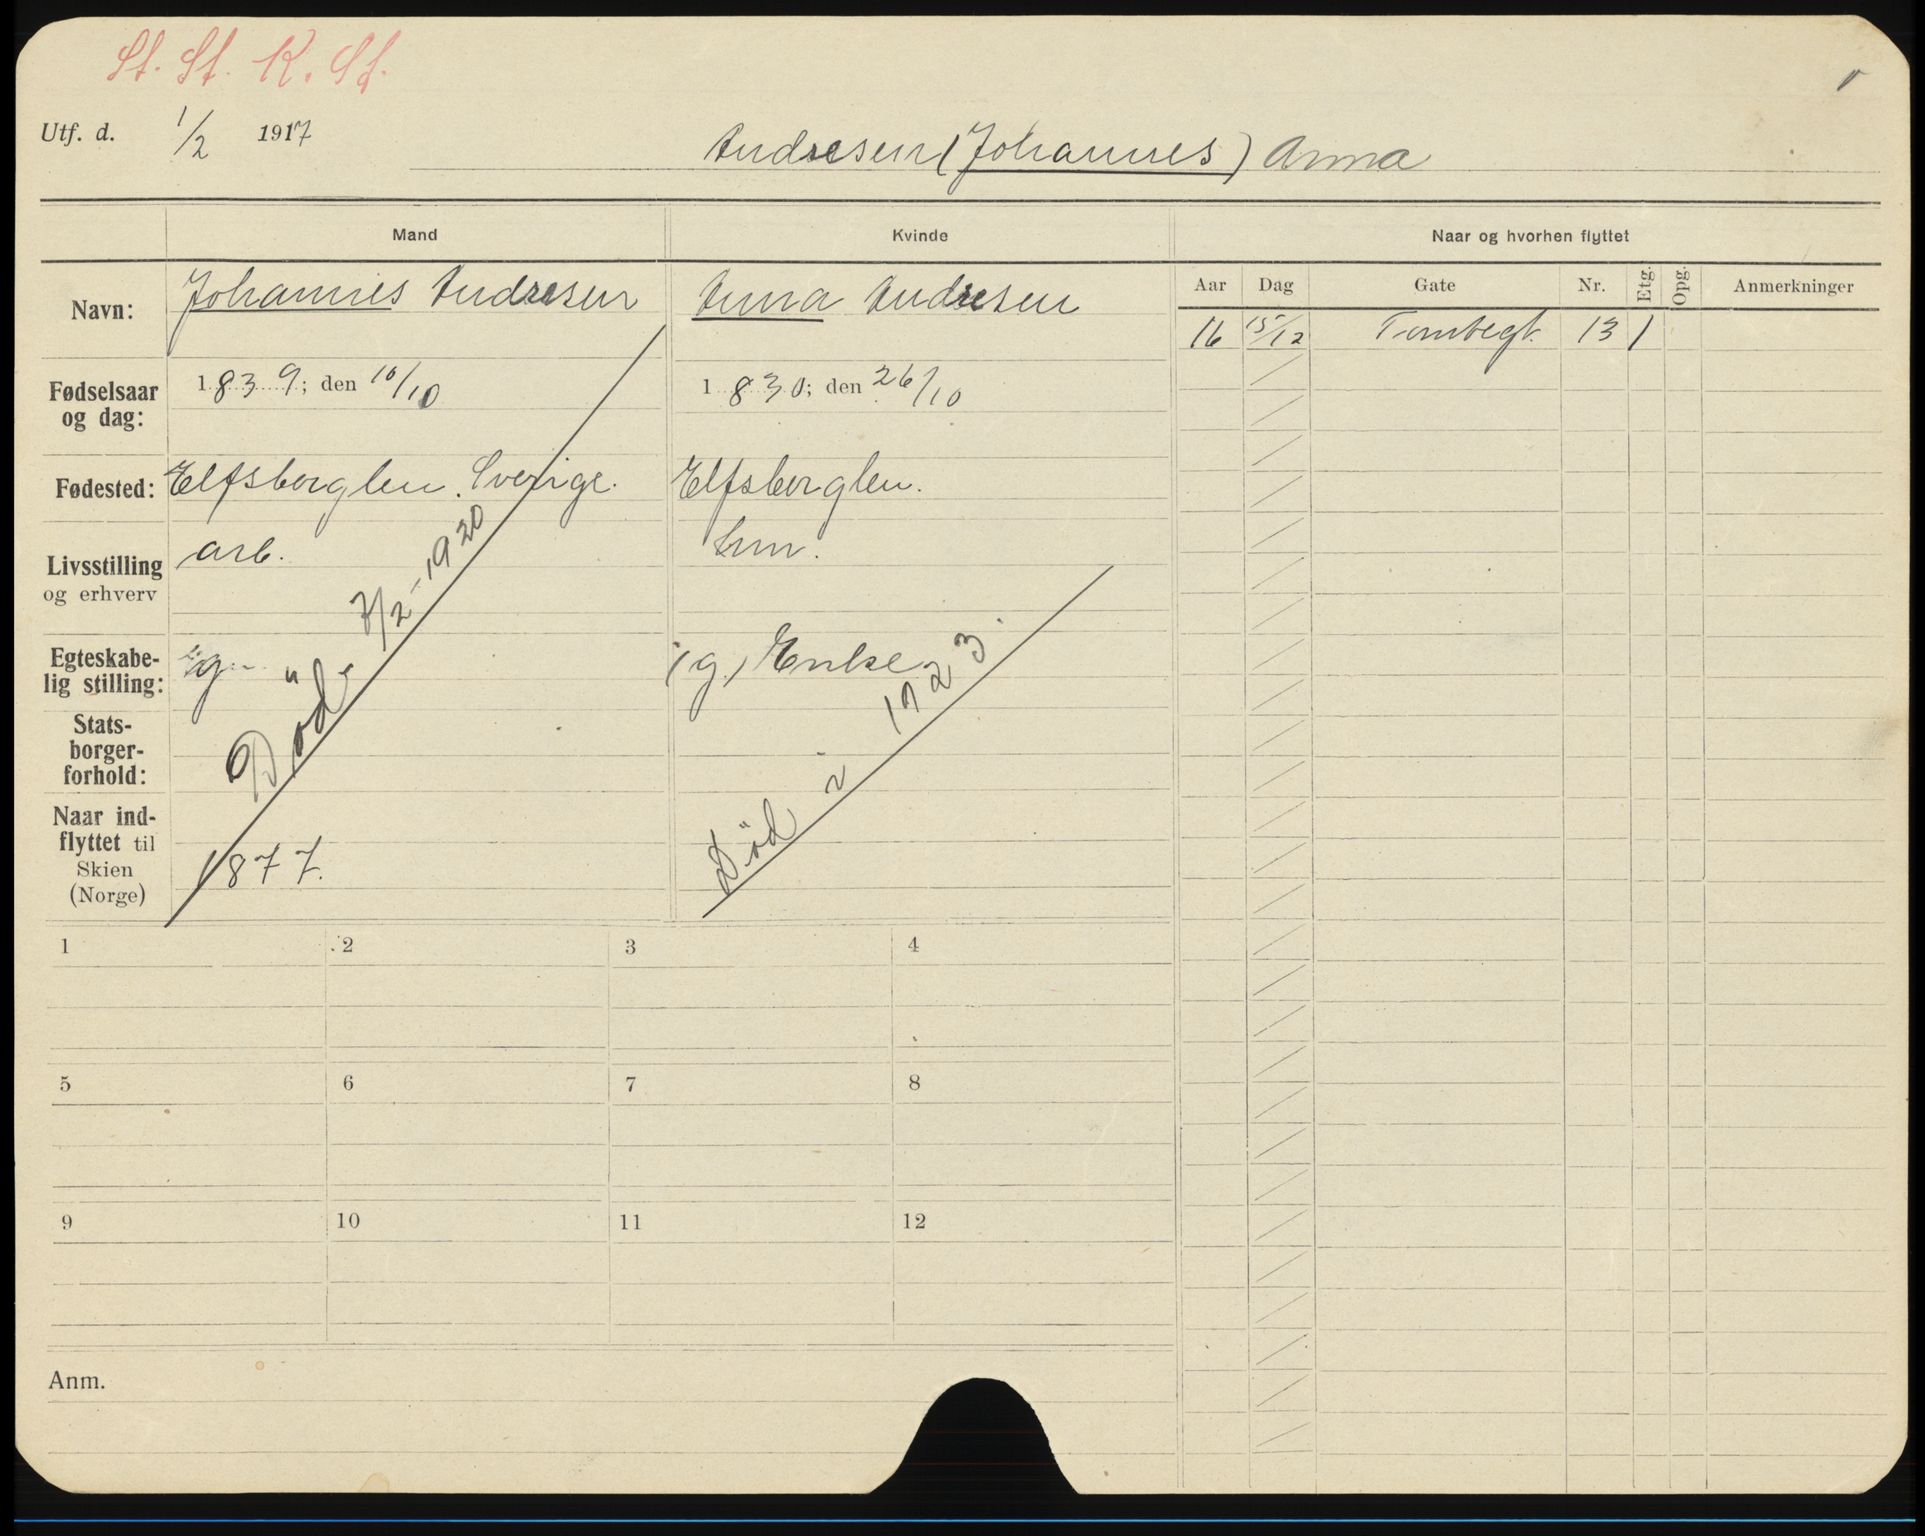 St. St. K. St.
Utf. d. 1/2 1917
Andresen (Johannes) Anna
Mand Kvinde Naar og hvorhen flyttet
Navn: Johannes Andresen Anna Andresen
Aar Dag Gate Nr. Etg. Opg. Anmerkninger
16 15/12 Tombegt. 13 1
Fødselsaar og dag: 1839; den 10/10 1830; den 26/10
Fødested: Elfsborglen. Sverige. Elfsborglen.
Livsstilling og erhverv arb. hm.
Egteskabelig stilling: g. (g.) Enke
Statsborgerforhold:
Naar indflyttet til Skien (Norge) 1877.
Död. 7/2-1920
Död i 1923.
1 2 3 4
5 6 7 8
9 10 11 12
Anm.